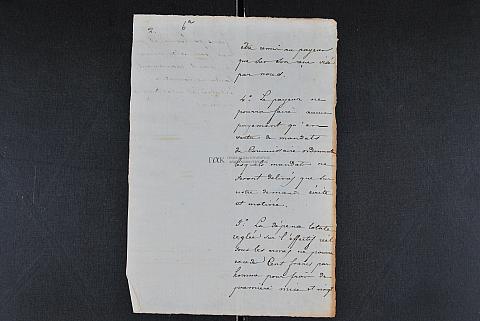 2. 6a
être remis au payeur
que sur son reçu visé
par nous.
4.o Le payeur ne
pourra faire aucun
payement qu'en
vertu de mandats
du Commissaire ordonnat
lesquels mandats ne
seront délivrés que sur
notre demande écrite
et motivée.
5.o La dépense totale
réglée sur l'effectif réel
tous les mois ne pourra
excéder Cent francs par
homme pour frais de
première mise et